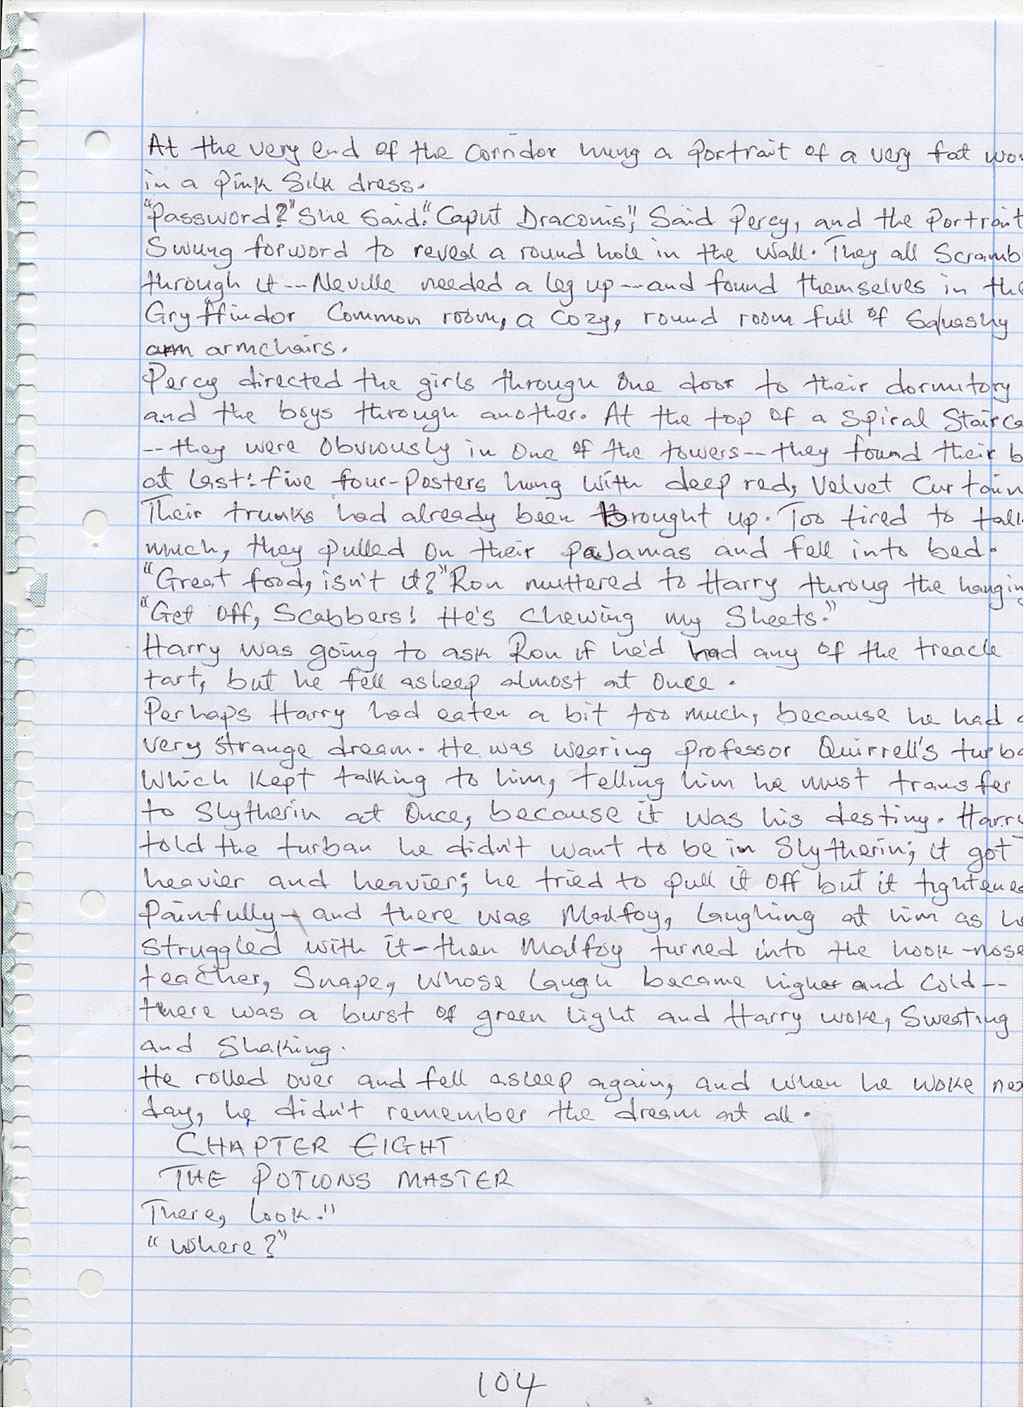 At the very end of the corridor hung a portrait of a very fat wo
in a pink silk dress.
"Password?" She said. "Caput Draconis", Said Percy, and the portrait
Swung forword to reveal a round hole in the wall. They all Scramb
through it -- Neville needed a leg up -- and found themselves in the
Gryffindor Common room, a cozy, round room full of Squashy
arm armchairs.
Percy directed the girls through one door to their dormitory
and the boys through another. At the top of a spiral Stairca
-- they were obviously in one of the towers -- they found their b
at last: five four-posters hung with deep red, velvet curtain
Their trunks had already been brought up. Too tired to talk
much, they pulled on their pajamas and fell into bed.
"Great food, isn't it?" Ron muttered to Harry throug the hanging
"Get off, Scabbers! He's chewing my Sheets."
Harry was going to ask Ron if he'd had any of the treacle
tart, but he fell asleep almost at once.
Perhaps Harry had eaten a bit too much, because he had a
very strange dream. He was wearing professor Quirrell's turba
which kept talking to him, telling him he must transfer
to Slytherin at once, because it was his destiny. Harry
told the turban he didn't want to be in Slytherin; it got
heavier and heavier; he tried to pull it off but it tightened
painfully - and there was Malfoy, laughing at him as h
struggled with it - then Malfoy turned into the hook-nose
teacher, Snape, whose laugh became higher and cold --
there was a burst of green light and Harry woke, Sweating
and Shaking.
He rolled over and fell asleep again, and when he woke nex
day, he didn't remember the dream at all.
CHAPTER EIGHT
THE POTIONS MASTER
There, look."
"Where?"
104